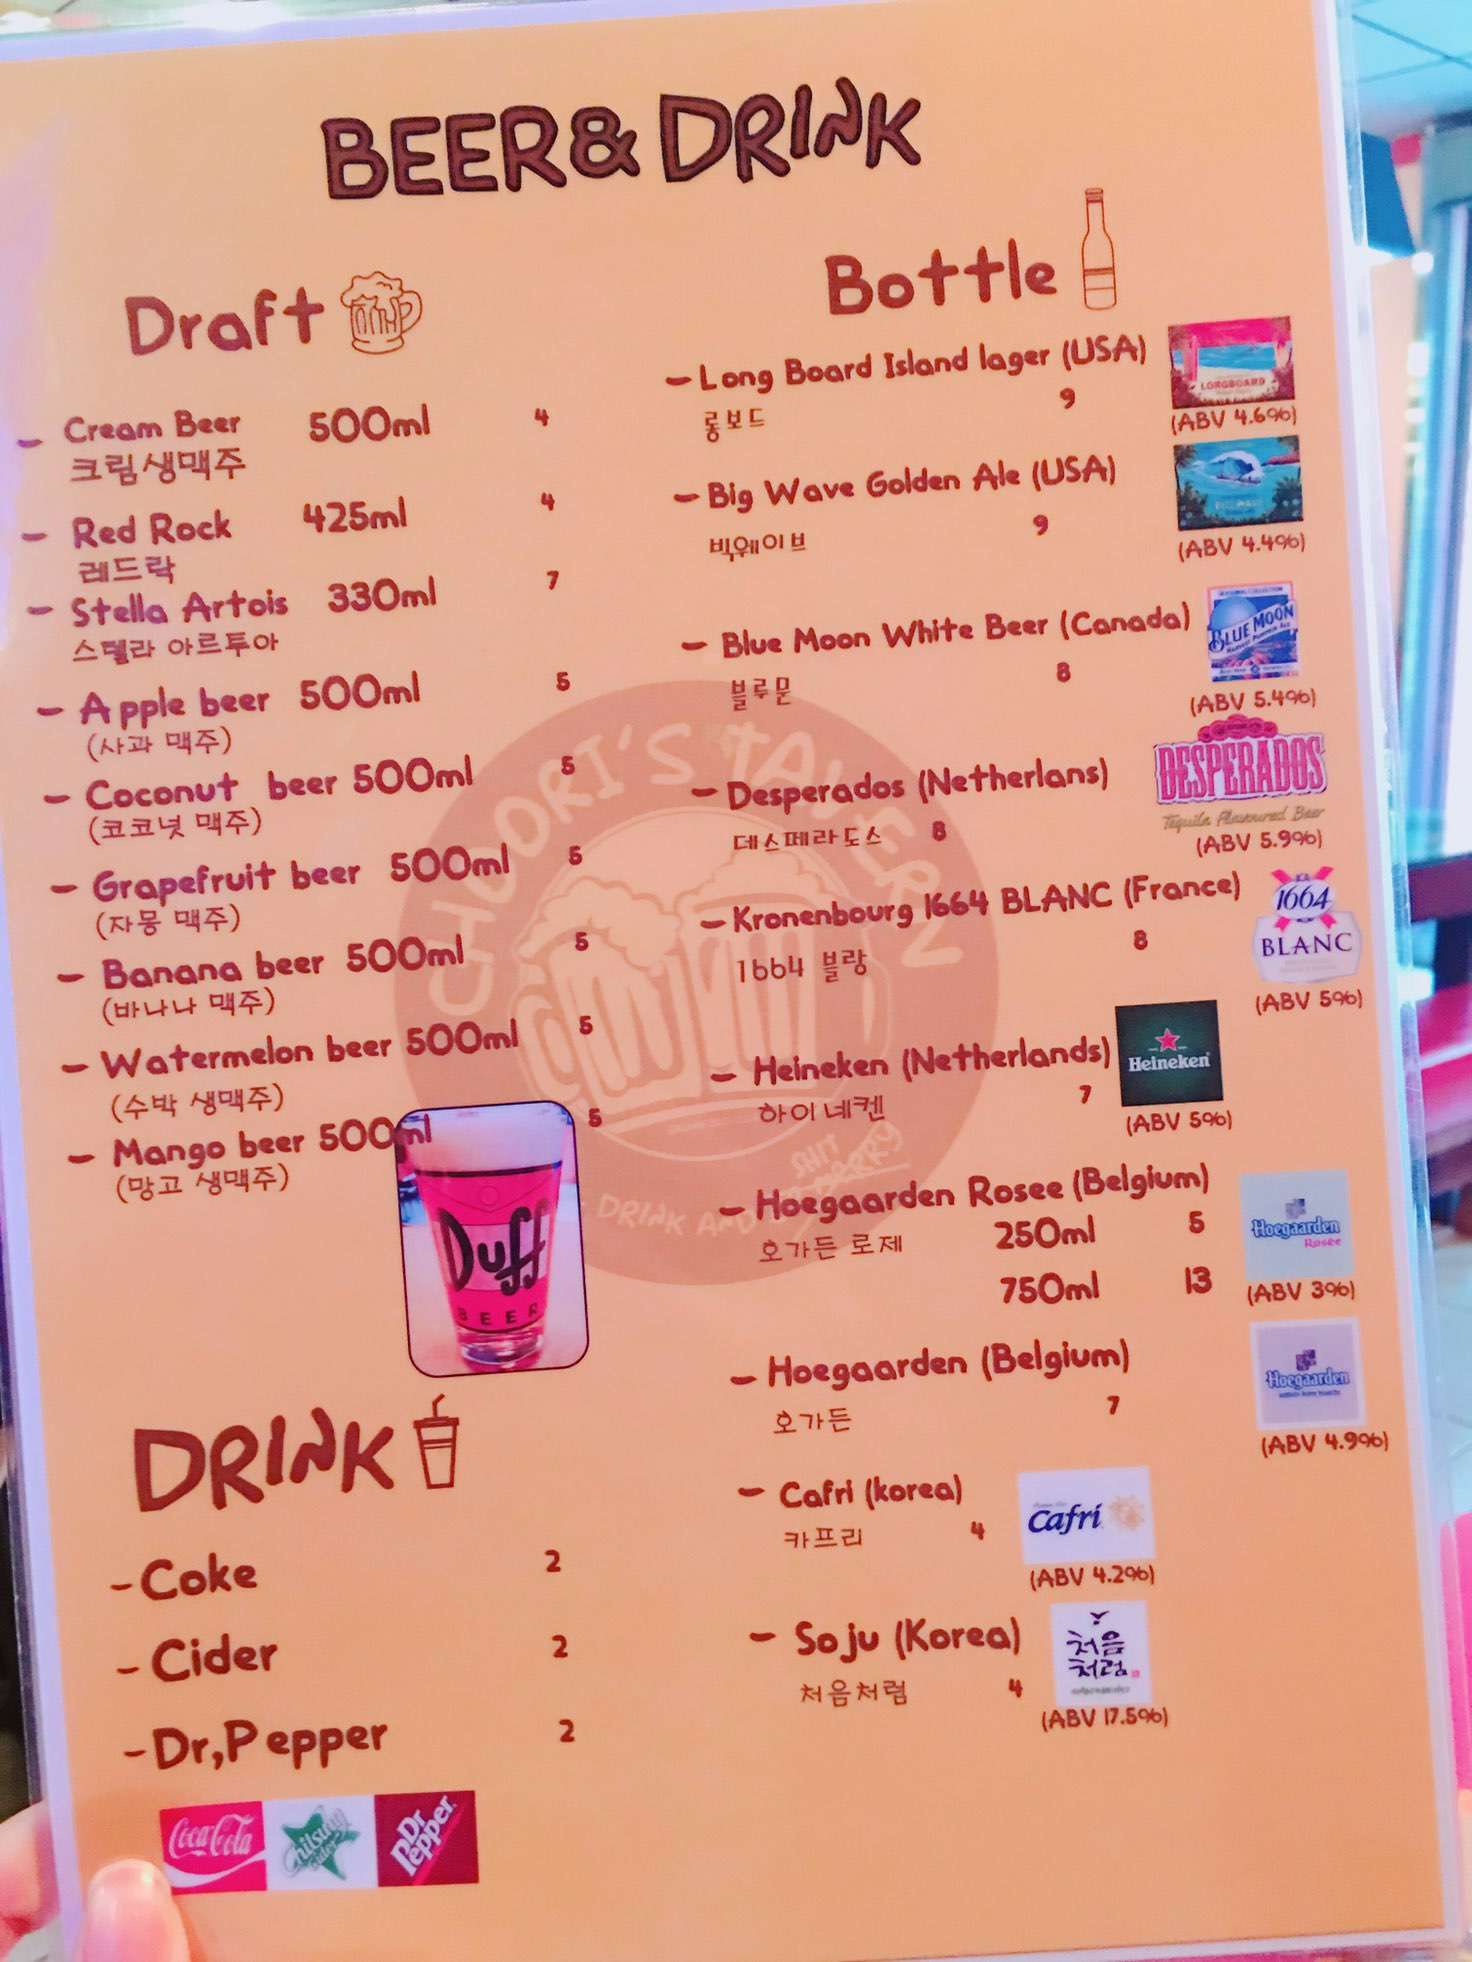 BEER & DRINK
Draft
- Cream Beer 500ml 4
크림생맥주
- Red Rock 425ml 4
레드락
- Stella Artois 330ml 7
스텔라 아르투아
- Apple beer 500ml 5
(사과 맥주)
- Coconut beer 500ml 5
(코코넛 맥주)
- Grapefruit beer 500ml 5
(자몽 맥주)
- Banana beer 500ml 5
(바나나 맥주)
- Watermelon beer 500ml 5
(수박 생맥주)
- Mango beer 500ml 5
(망고 생맥주)
Duff
BEER
DRINK
-Coke 2
-Cider 2
-Dr,Pepper 2
Coca-Cola
Chilsung
Cider
Dr
Pepper
Bottle
- Long Board Island lager (USA)
롱보드 9
LONGBOARD
(ABV 4.6%)
- Big Wave Golden Ale (USA)
빅웨이브 9
(ABV 4.4%)
- Blue Moon White Beer (Canada)
블루문 8
BLUE MOON
(ABV 5.4%)
- Desperados (Netherlans)
데스페라도스 8
DESPERADOS
Tequila Flavoured Beer
(ABV 5.9%)
- Kronenbourg 1664 BLANC (France)
1664 블랑 8
1664
BLANC
(ABV 5%)
- Heineken (Netherlands)
하이네켄 7
Heineken
(ABV 5%)
- Hoegaarden Rosee (Belgium)
호가든 로제 250ml 5
750ml 13
Hoegaarden
Rosée
(ABV 3%)
- Hoegaarden (Belgium)
호가든 7
Hoegaarden
(ABV 4.9%)
- Cafri (korea)
카프리 4
Cafri
(ABV 4.2%)
- Soju (Korea)
처음처럼 4
처음
처럼
(ABV 17.5%)
CHUORI'S TAVERN
SHIT
DRINK AND